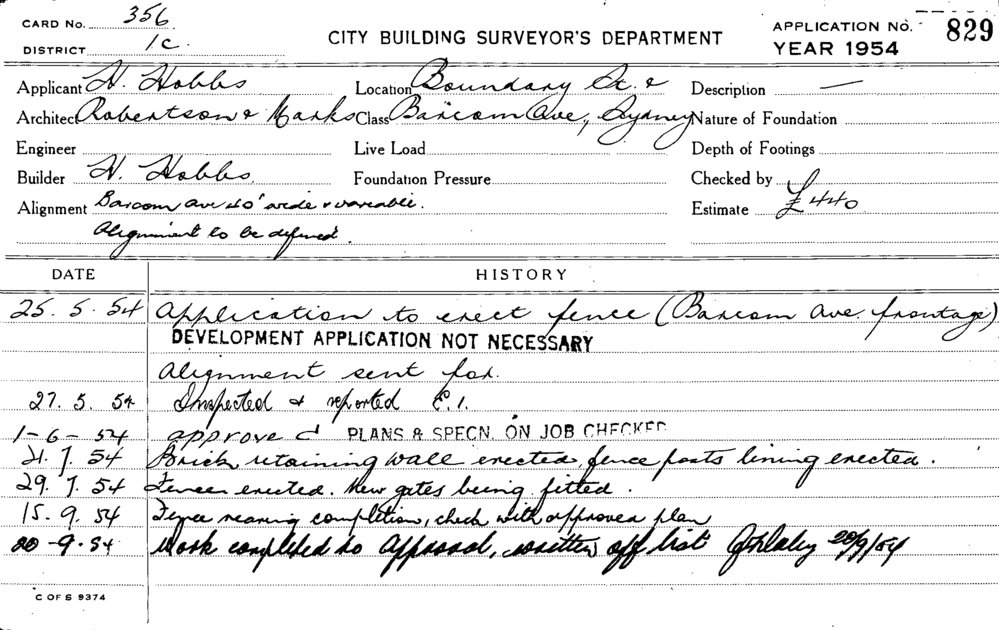 CARD No. 356
DISTRICT 1c.
CITY BUILDING SURVEYOR'S DEPARTMENT
APPLICATION No. 829
YEAR 1954
Applicant H. Hobbs
Location Boundary St. &
Description —
Architect Robertson & Marks
Class Barcom Ave, Sydney
Nature of Foundation
Engineer
Live Load
Depth of Footings
Builder H. Hobbs.
Foundation Pressure
Checked by
Alignment Barcom ave 40' wide & variable.
Estimate £440
Alignment to be defined.
DATE HISTORY
25. 5. 54 Application to erect fence (Barcom Ave. frontage)
DEVELOPMENT APPLICATION NOT NECESSARY
Alignment sent for.
27. 5. 54 Inspected & reported E.1.
1-6-54 approved PLANS & SPECN. ON JOB CHECKED
21. 7. 54 Brick retaining wall erected, fence posts lining erected.
29. 7. 54 Fence erected. New gates being fitted.
15. 9. 54 Fence nearing completion, check with approved plan
20-9-54 Work completed to Approval, written off list 20/9/54
C OF S 9374